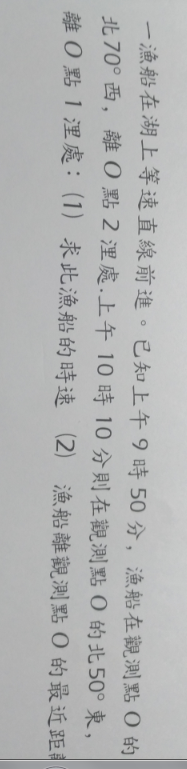 一漁船在湖上等速直線前進。已知上午9時50分，漁船在觀測點O的
北70°西，離O點2浬處.上午10時10分則在觀測點O的北50°東，
離O點1浬處：(1) 求此漁船的時速 (2) 漁船離觀測點O的最近距